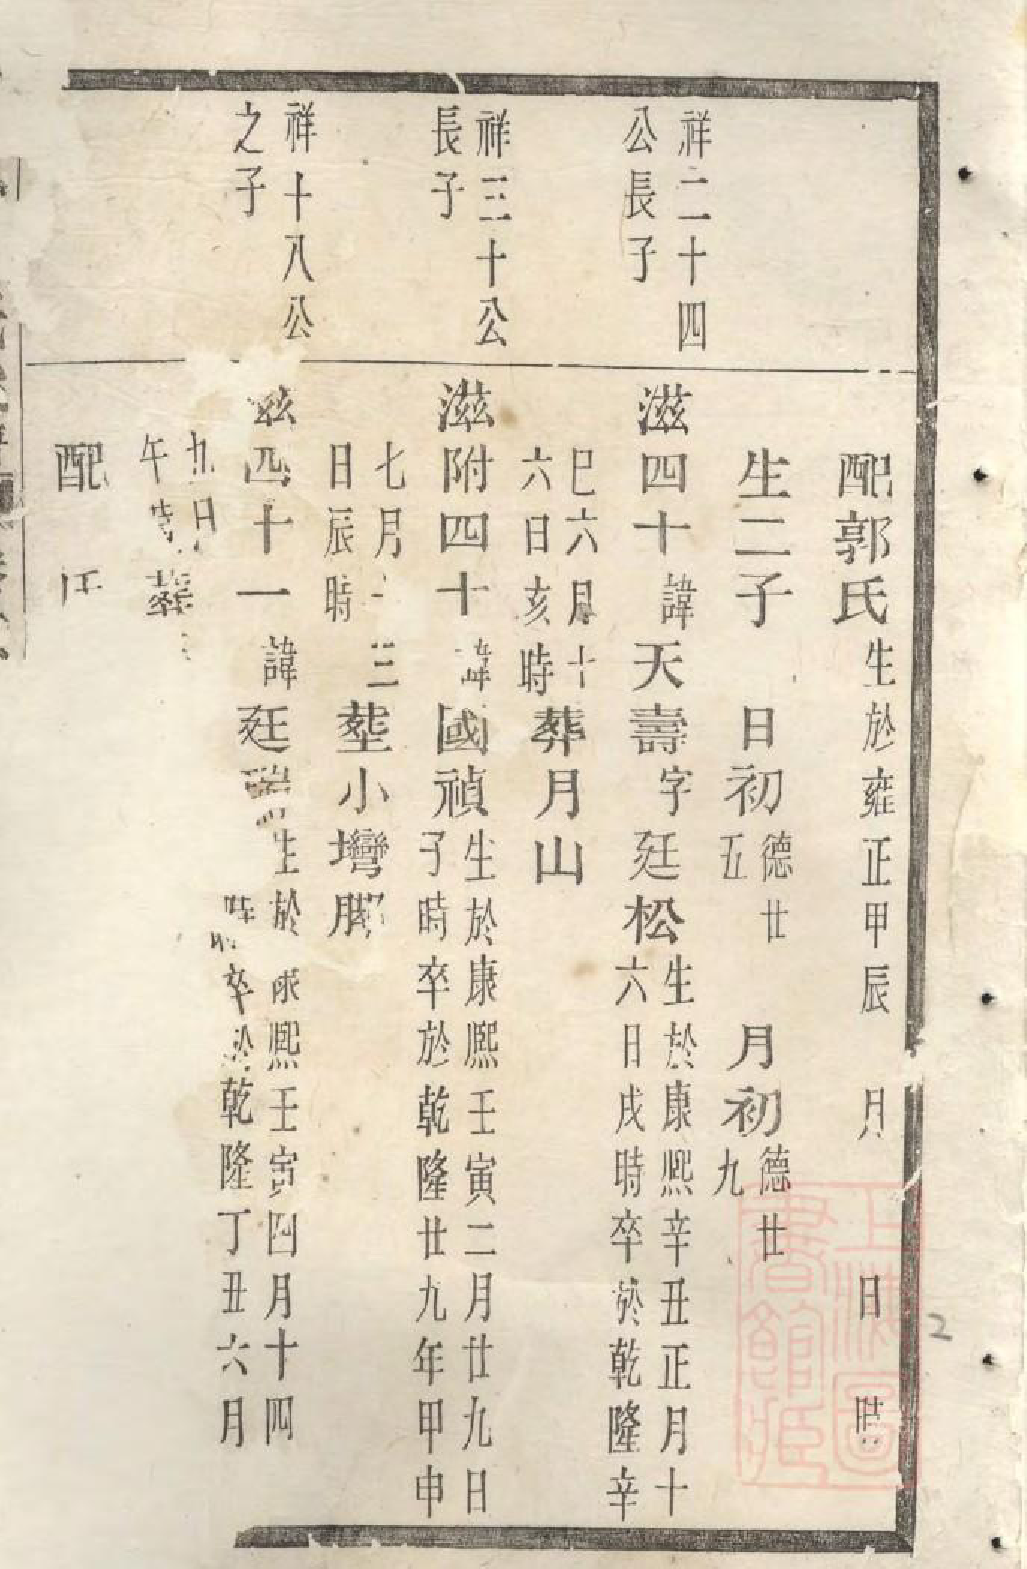 配郭氏生於雍正甲辰 月 日 時
生二子 日初五德廿 月初九德廿
祥二十四
公長子
滋四十諱天壽字廷松生於康熙辛丑正月十
六日戌時卒於乾隆辛
巳六月十
六日亥時葬月山
祥三十公
長子
滋附四十諱國禎生於康熙壬寅二月廿九日
子時卒於乾隆廿九年甲申
七月十三
日辰時塟小灣腳
祥十八公
之子
滋四十一諱廷瑞生於康熙壬寅四月十四
時卒於乾隆丁丑六月
九日
午時葬
配 氏
上海圖書館藏
2